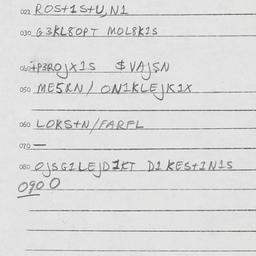 022 ROST1STU,N1
030 G3KL8OPT MOL8K1S
040 TP3ROJX1S $VAJSN
050 ME5RN/ ON1KLEJK1X
060 LOKSTN/FARFL
070 —
080 OJSG1LEJD1KT D1KEST1N1S
090 O